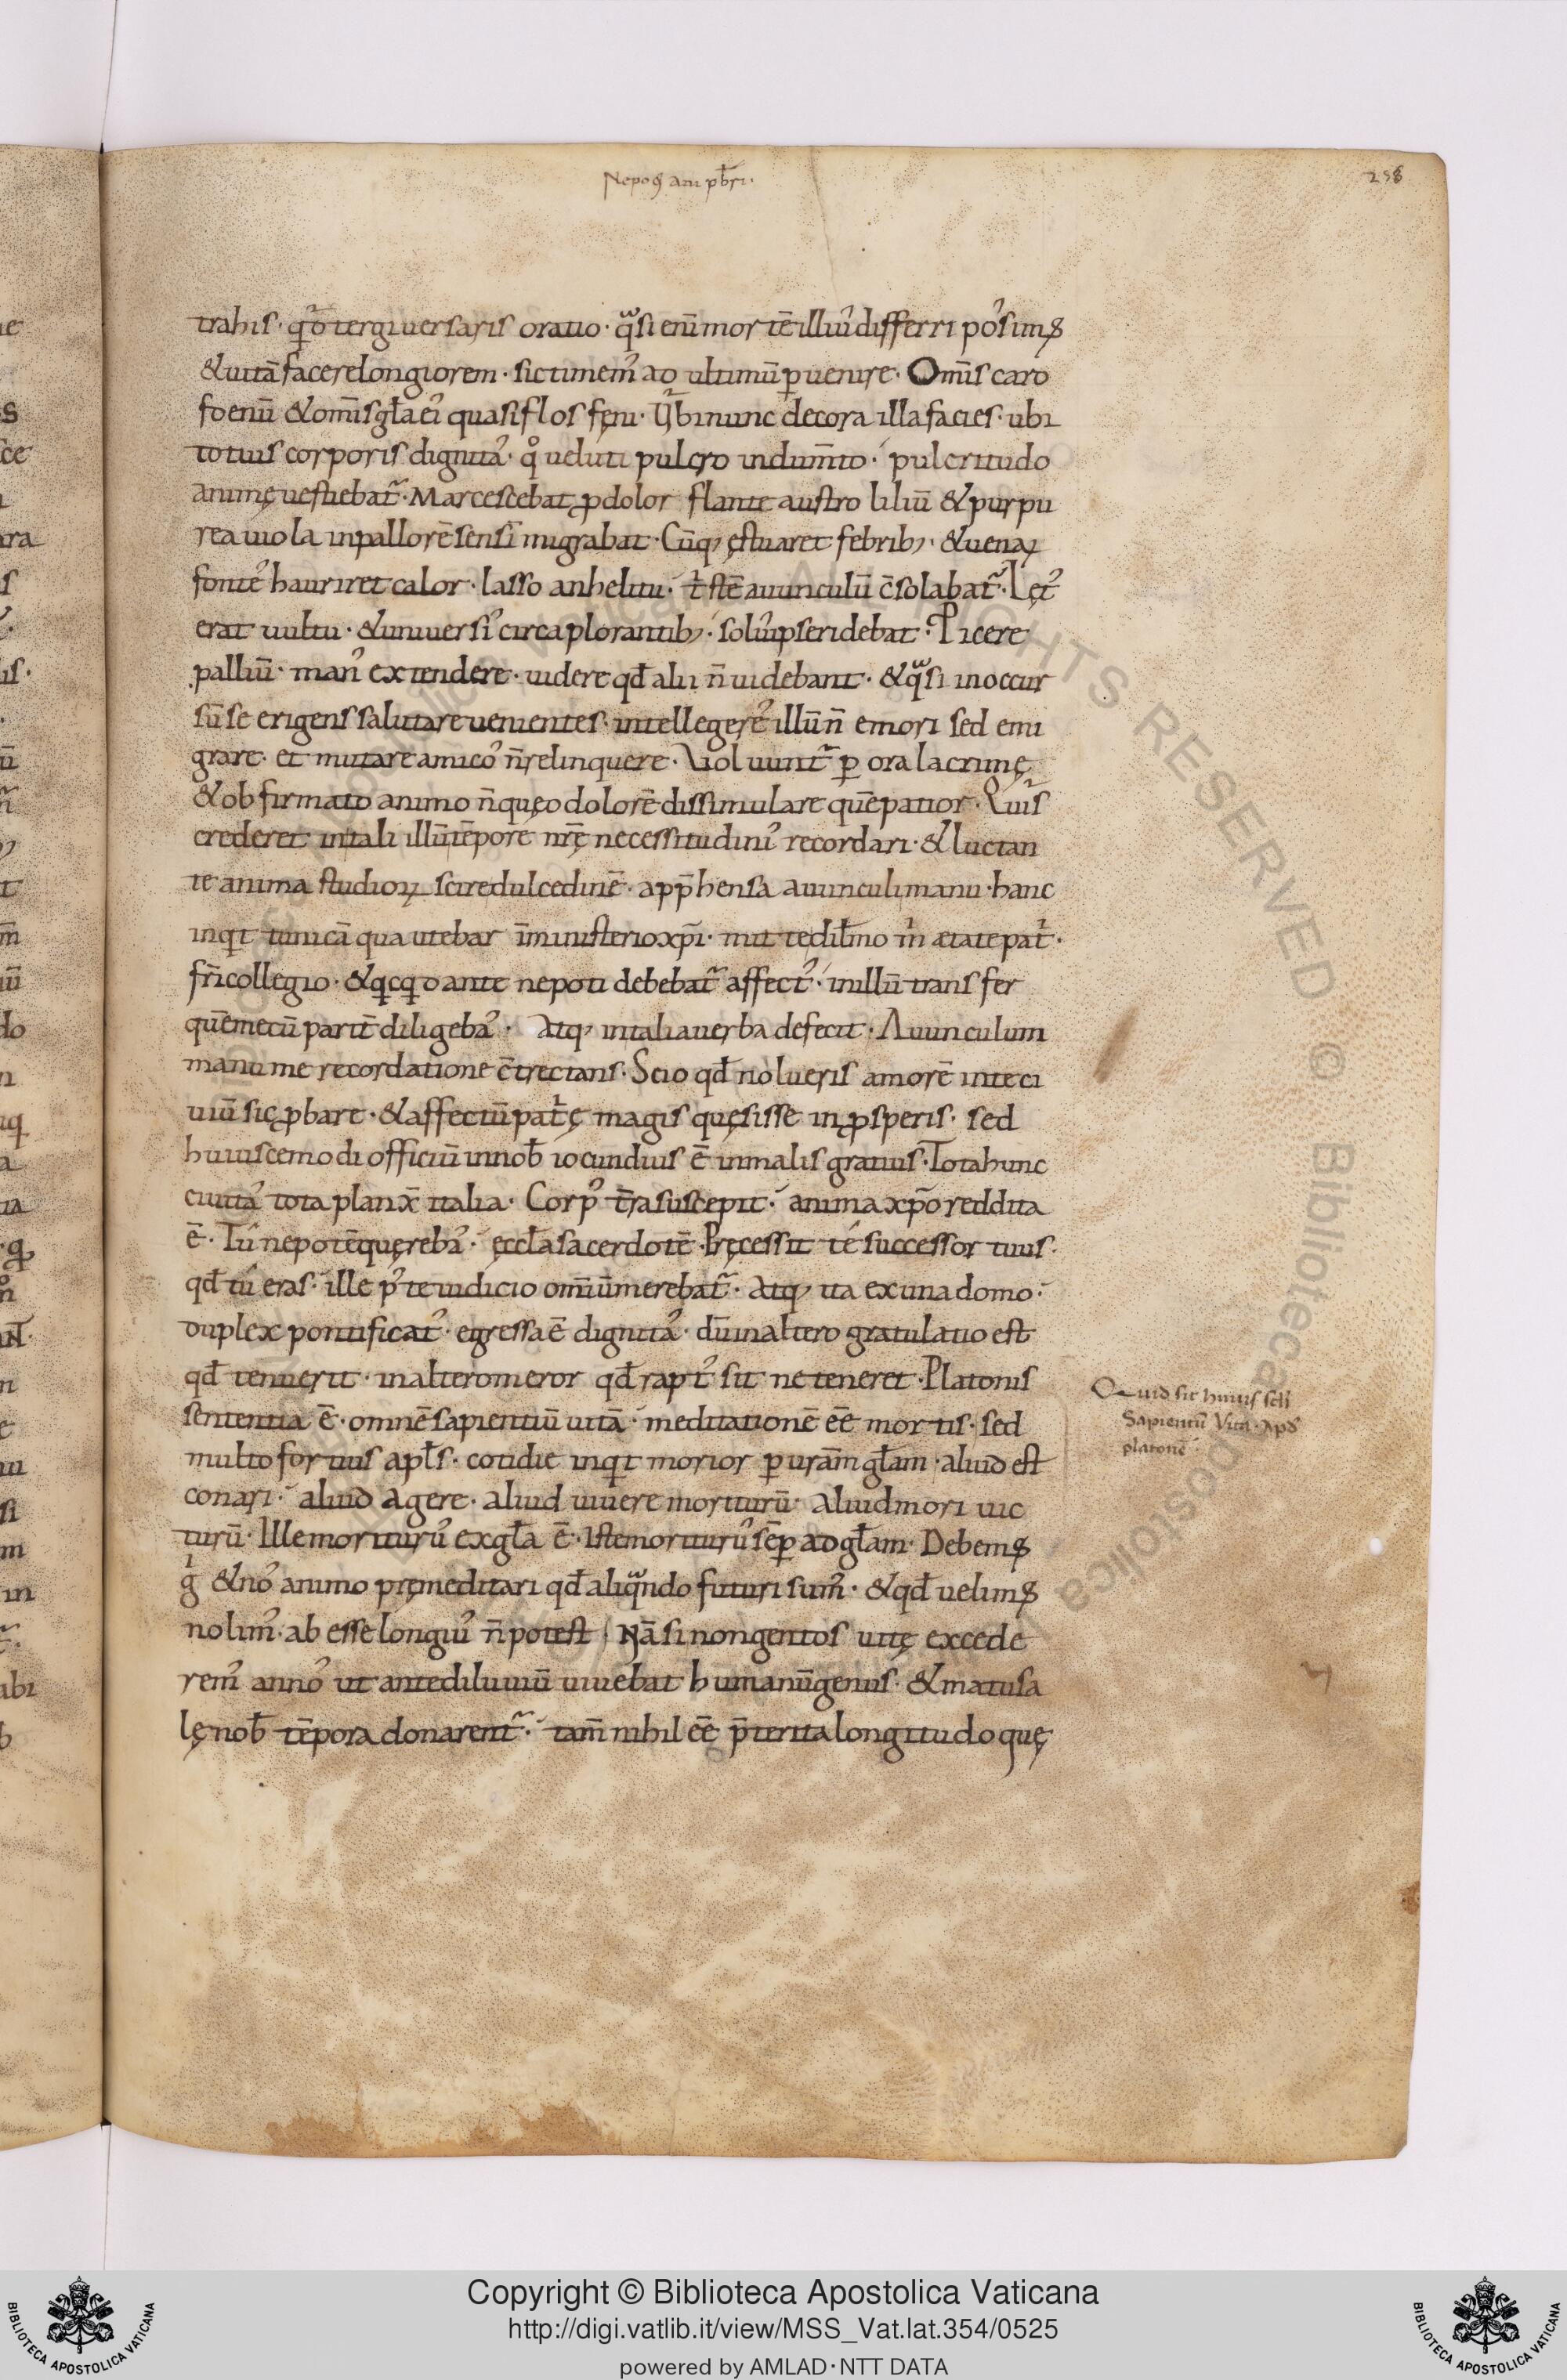 Nepotiani pb̄ri.
258
trahis· qͥd tergiuersaris oratio· qᵃsi eni̅ morte̅ illiuˀ differri poˀsimꝰ
&uita̅ facere longiorem· sic timemˀ ad ultimu̅ ꝑuenire· Om̅is caro
foenu̅ &om̅is gl̅a eiˀ quasi flos fęni· Vbi nunc decora illa facies· ubi
totius corporis dignitaˀ· qͦ ueluti pulcro indum̅to· pulcritudo
animę uestiebat᷑· Marcescebat ꝓdolor flante austro liliu̅ & purpu
rea uiola in pallore̅ sensi̅ migrabat· Cu̅q; ęstuaret febrib;· &uenaꝝ
fonteˀ hauriret calor· lasso anhelitu· tͥste̅ auunculu̅ c̅solabat᷑· Lętˀ
erat uultu· &uniuersiˀ circa plorantib;· soluˀ ipse ridebat· Picere
palliu̅· manˀ extendere· uidere qd̅ alii n̅ uidebant· &qᵃsi in occur
su̅ se erigens salutare uenientes· intellegereˀ illu̅ n̅ emori sed emi
grare· et mutare amicoˀ n̅ relinquere· Voluunt᷑ ꝑ ora lacrimę
&obfirmato animo n̅ quęo dolore̅ dissimulare que̅ patior· Quis
crederet in tali illu̅ te̅pore nr̅ę necessitudiniˀ recordari· &luctan
te anima studioꝝ scire dulcedine̅· app̅hensa auunculi manu· hanc
inqͥt tunica̅ qua utebar i̅ ministerio xp̅i· mitte dil̅mo mͥ ætate patͥ·
fr̅i collegio· &qͥcqͥd ante nepoti debebat᷑ affectˀ· in illu̅ transfer
que̅ mecu̅ parit̅ diligebaˀ· Atq; in talia uerba defecit· Auunculum
manu me recordatione c̅trectans· Scio qd̅ nolueris amore̅ in te ci
uiu̅ sic ꝓbare· &affectu̅ patͥę magis quęsisse in ꝓsperis· sed
huiuscemodi officiu̅ in nob̅ iocundius e̅ in malis gratius· Tota hunc
ciuitaˀ tota planx̅ italia· Corpˀ t̅ra suscepit· anima xp̅o reddita
e̅· Tu̅ nepote̅ quęrebaˀ· ęccl̅a sacerdote̅· Pręcessit te successor tuus·
qd̅ tu eras· ille pˀ te iudicio omniu̅ merebat᷑· Atq; ita ex una domo·
duplex pontificatˀ· egressa e̅ dignitaˀ· du̅ in altero gratulatio est
qd̅ tenuerit· in altero meror qd̅ raptˀ sit ne teneret· Platonis
sententia e̅· omne̅ sapientiu̅ uita̅· meditatione̅ e̅e mortis· sed
multo fortius apl̅s· cotidie inqͥt morior ꝑ ura̅m gl̅am· aliud est
conari· aliud agere· aliud uiuere moriturum̅· aliud mori uic
turu̅· Ille morituruˀ ex gl̅a e̅· Iste morituruˀ se̅ꝑ ad gl̅am· Debemꝰ
gͥ &noˀ animo pręmeditari qd̅ aliqᵃndo futuri sumˀ· &qd̅ uelimꝰ
nolimˀ· abesse longiuˀ n̅ potest· Na̅ si nongentos uitę excede
remˀ annoˀ ut ante diluuiu̅ uiuebat humanu̅ genus· &matusa
lę nob̅ te̅pora donarent᷑· tam̅ nihil e̅e p̅terita longitudo quę
Quid sit huius scli
Sapientu̅ Vita· apd̅
platone̅